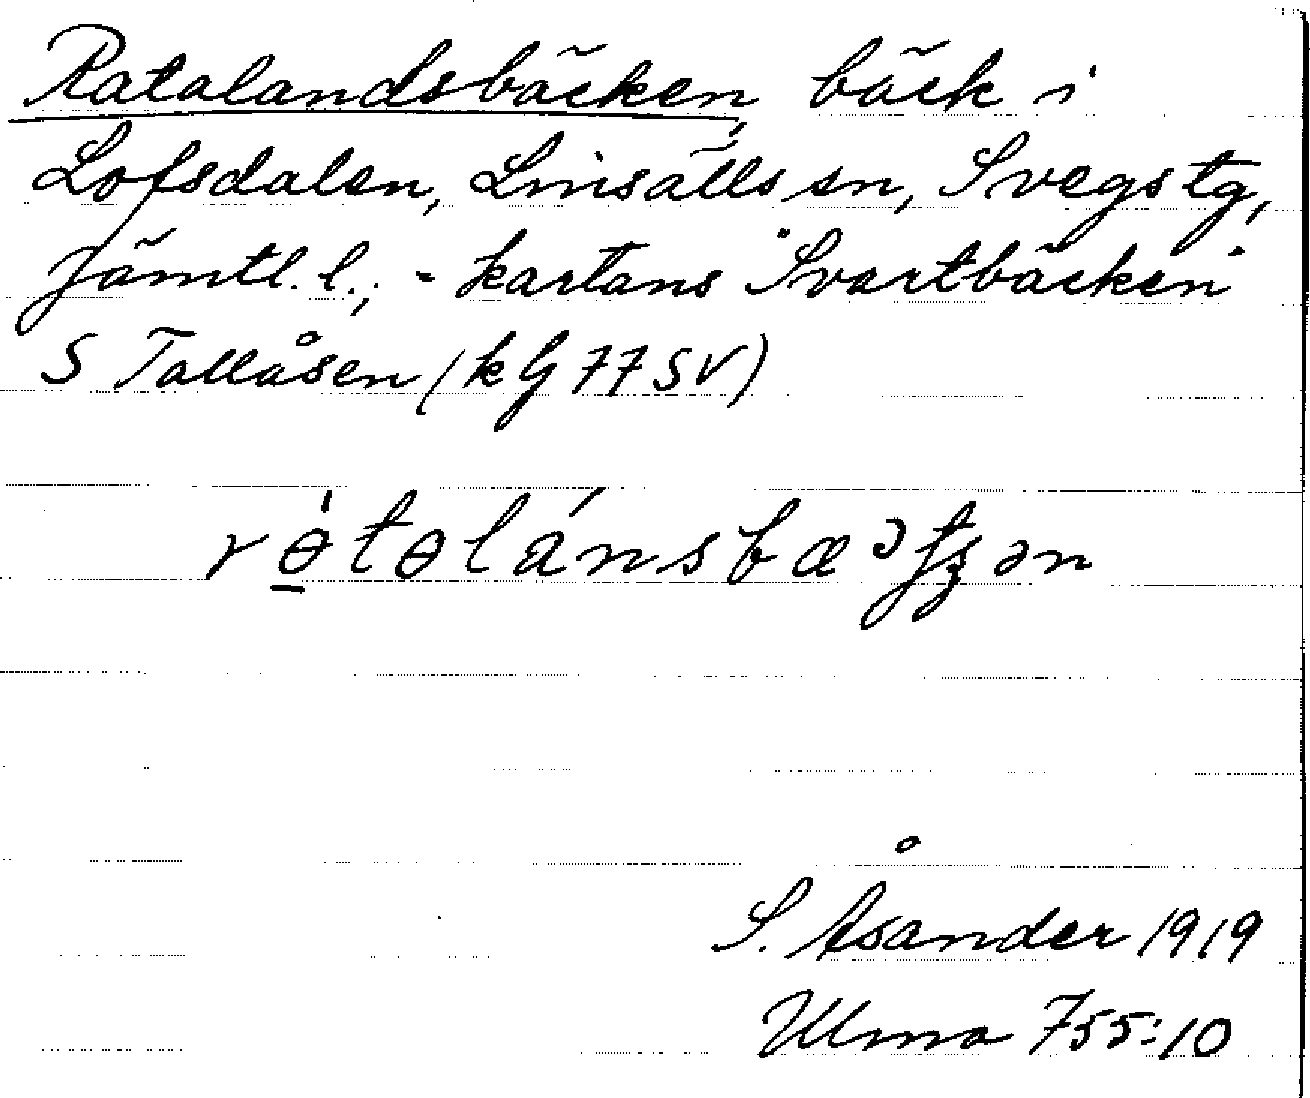 Ratalandsbäcken, bäck i
Lofsdalen, Linsälls sn, Svegs tg,
Jämtl. l.; - kartans "Svartbäcken"
S Tallåsen (kG 77 SV)
rɵ̱̀tɵlánsbæɔʃʒən
S. Åsander 1919
Ulma 755:10